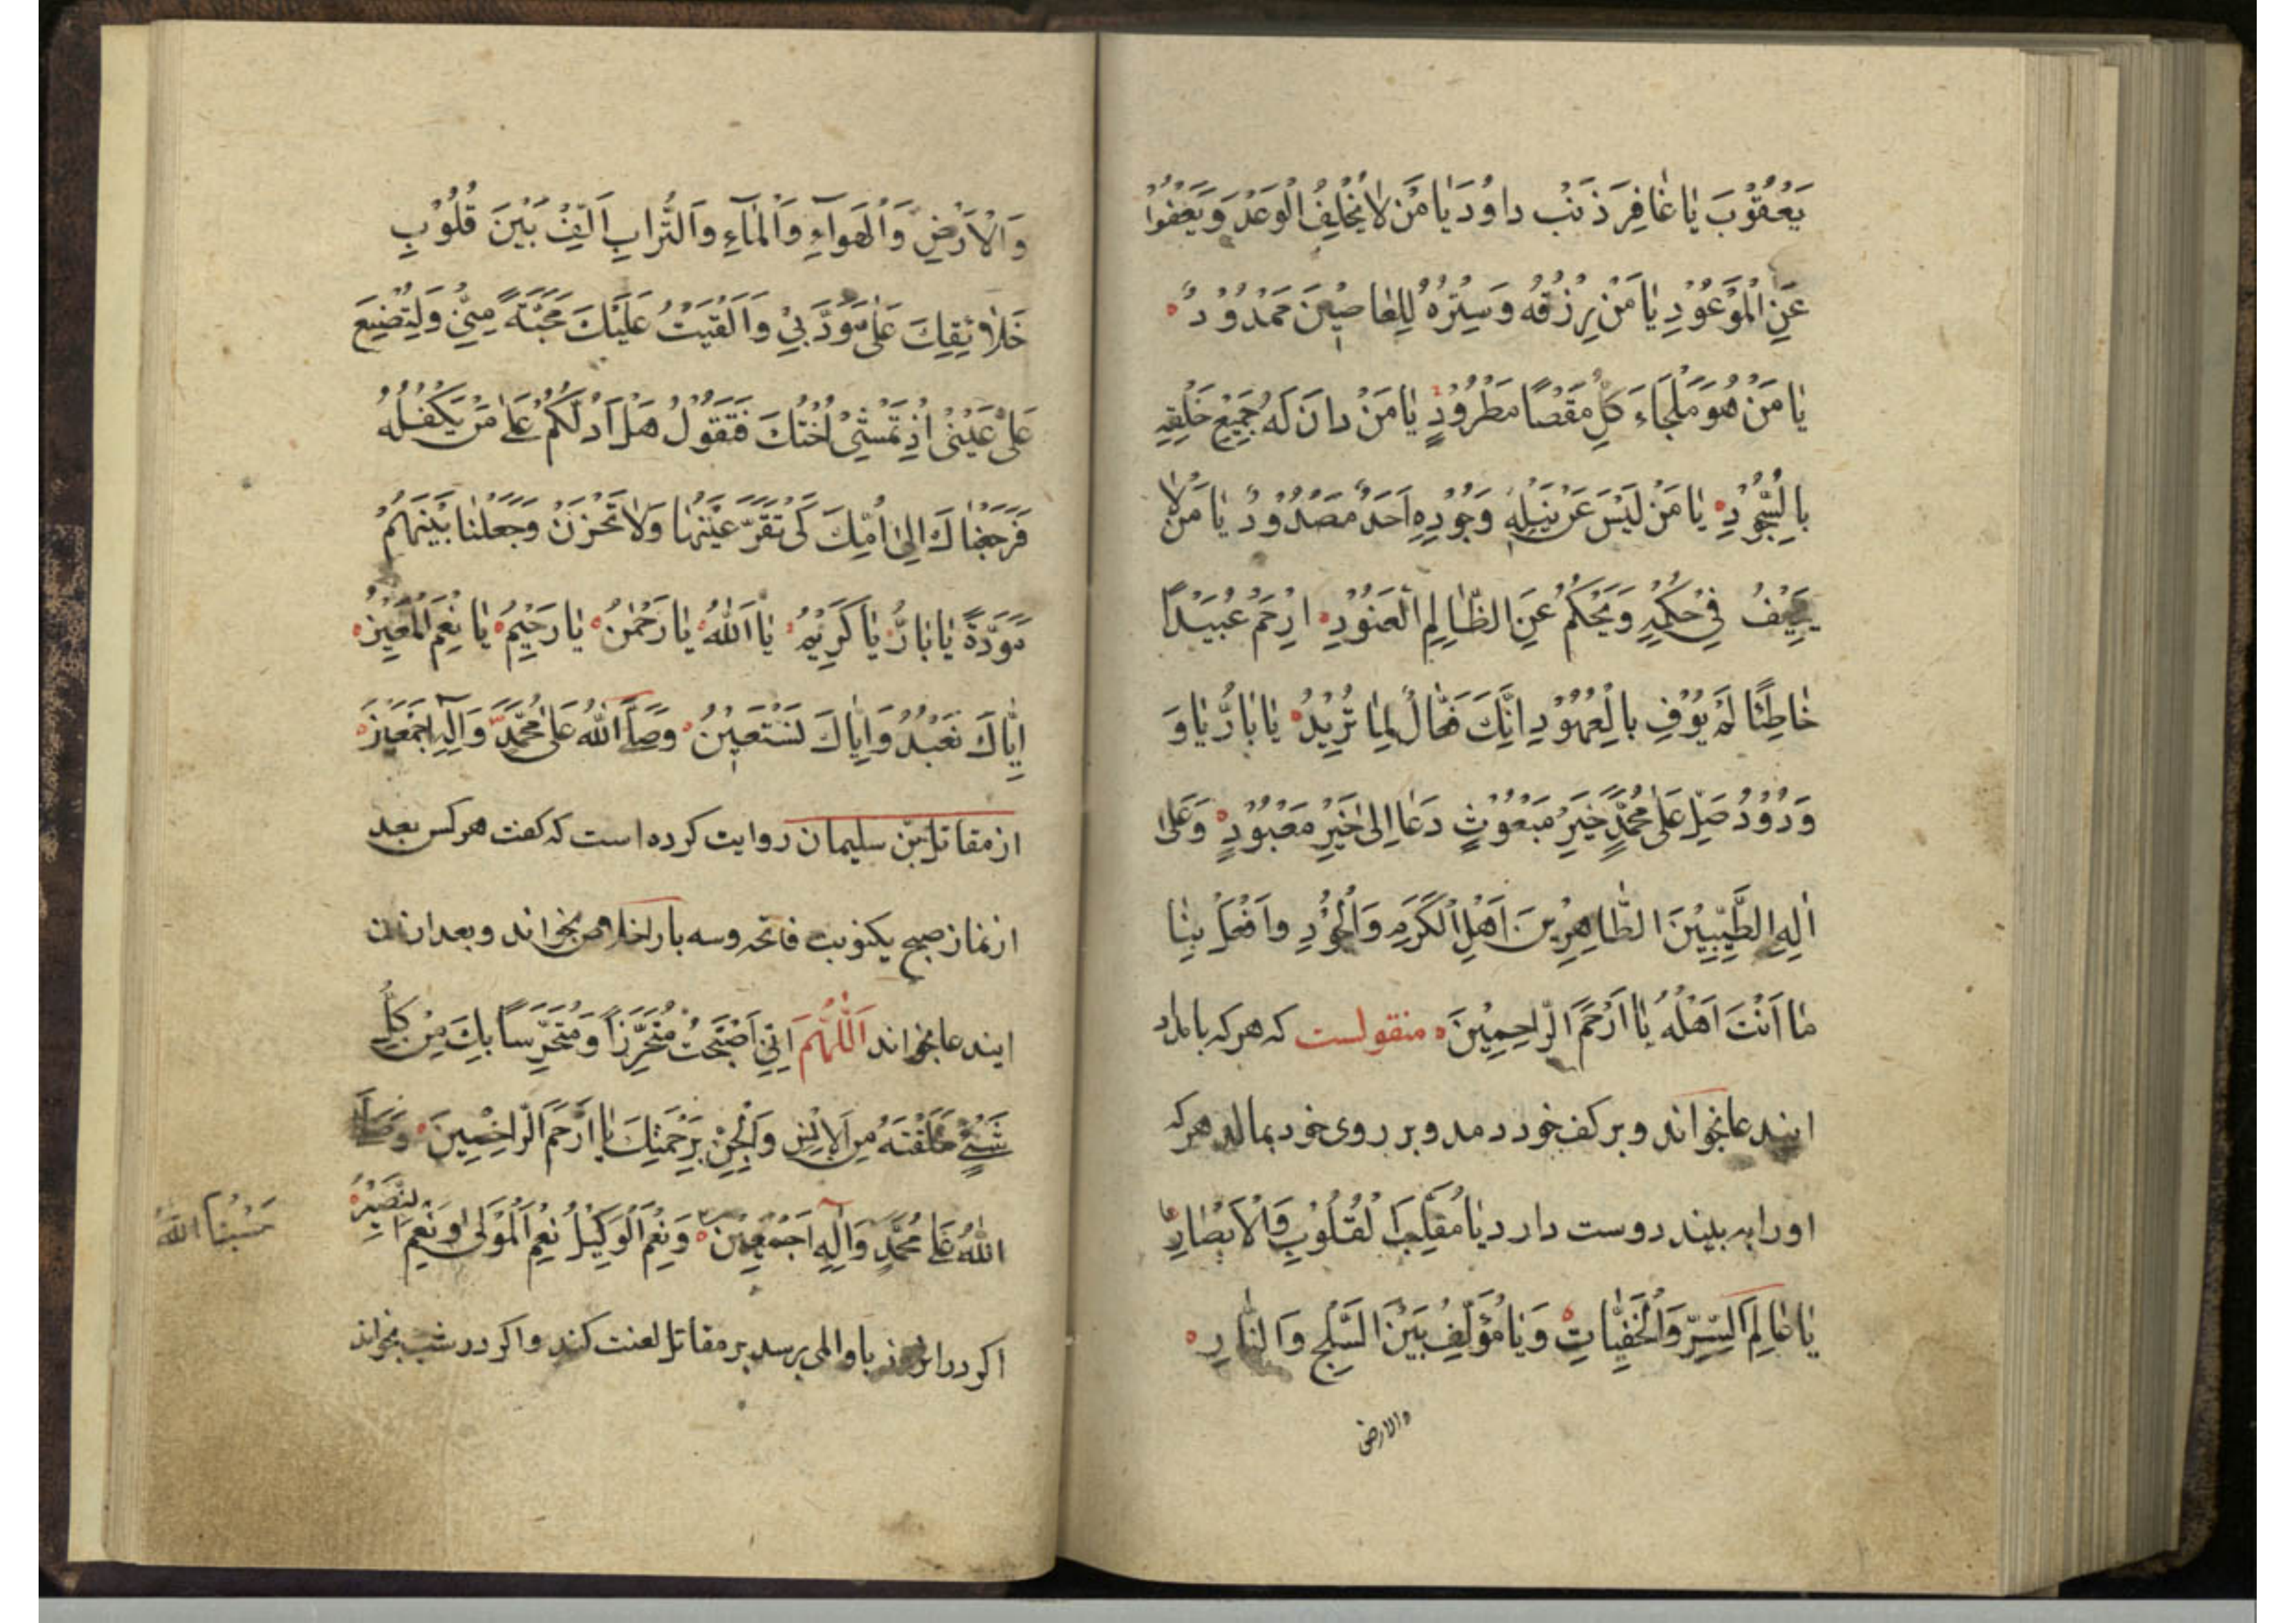 يَعْقُوْبَ يٰا غٰافِرَ ذَنْبِ داوُدَ يٰا مَنْ لاٰ يُخْلِفُ الْوَعْدَ وَيَعْفُوْا
عَنِ الْمَوْعُوْدِ يٰا مَنْ رِزْقُهُ وَسِتْرُهُ لِلْعٰاصِيْنَ مَمْدُوْدٌ
يٰا مَنْ هُوَ مَلْجَاءَ كُلِّ مَقْصًا مَطْرُوْدٍ يٰا مَنْ دانَ لَهُ جَمِيْعِ خَلْقِهِ
بِالسُّجُوْدِ يٰا مَنْ لَيْسَ عَنْ نَيْلِهِ وَجُوْدِهِ اَحَدٌ مَصْدُوْدٌ يٰا مَنْ لاٰ
يَحِيْفُ فِيْ حُكْمِهِ وَيَحْكُمُ عَنِ الظّٰالِمِ الْعَنُوْدِ ارْحَمْ عُبَيْدًا
خٰاطِئًا لَمْ يُوْفِ بِالْعُهُوْدِ اِنَّكَ فَعّٰالٌ لِمٰا تُرِيْدُ يٰا بٰارُّ يٰا وَ
وَدُوْدُ صَلِّ عَلٰى مُحَمَّدٍ خَيْرِ مَبْعُوْثٍ دَعٰا اِلٰى خَيْرِ مَعْبُوْدٍ وَعَلٰى
اٰلِهِ الطَّيِّبِيْنَ الطّٰاهِرِيْنَ اَهْلِ الْكَرَمِ وَالْجُوْدِ وافْعَلْ بِنٰا
مٰا اَنْتَ اَهْلُهُ يٰا اَرْحَمَ الرّٰاحِمِيْنَ منقولست كه هركه بامداد
ايندعا بخواند و بر كف خود دمد و بر روى خود بمالد هركه
اورا به بيند دوست دارد يٰا مُقَلِّبَ الْقُلُوْبِ وَالْاَبْصٰارِ
يٰا عٰالِمَ السِّرِّ وَالْخَفِيّٰاتِ وَيٰا مُؤَلِّفُ بَيْنَ الثَّلْجِ وَالنّٰارِ
والارض
وَالْاَرْضِ وَالْهَوآءِ وَالْمٰآءِ وَالتُّرابِ اَلِّفْ بَيْنَ قُلُوْبِ
خَلاٰئِقِكَ عَلٰى مَوَدَّتِيْ وَاَلْقَيْتُ عَلَيْكَ مَحَبَّةً مِنِّيْ وَلِتُصْنِعَ
عَلٰى عَيْنِيْ اِذْ تَمْشِيْ اُخْتُكَ فَتَقُوْلُ هَلْ اَدُلُّكُمْ عَلٰى مَنْ يَكْفُلُهُ
فَرَجَعْنٰاكَ اِلٰى اُمِّكَ كَىْ تَقَرَّ عَيْنُهٰا وَلاٰ تَحْزَنْ وَجَعَلْنٰا بَيْنَهُمْ
مَوَدَّةً يٰا بٰارُّ يٰا كَرِيْمُ يٰا اَللّٰهُ يٰا رَحْمٰنُ يٰا رَحِيْمُ يٰا نِعْمَ الْمُعِيْنُ
اِيّٰاكَ نَعْبُدُ وَاِيّٰاكَ نَسْتَعِيْنُ وَصَلَّى اللّٰهُ عَلٰى مُحَمَّدٍ وَاٰلِهِ اَجْمَعِيْنَ
از مقاتل بن سليمان روايت كرده است كه كفت هر كس بعد
از نماز صبح يكنوبت فاتحه وسه بار اخلاص بخواند وبعد ازان
ايندعا بخواند اَللّٰهُمَّ اِنِّيْ اَصْبَحْتُ مُتَحَرِّزاً وَمُتَحَرِّسًا بِكَ مِنْ كُلِّ
شَيْءٍ خَلَقْتَهُ مِنَ الْاِنْسِ وَالْجِنِّ بِرَحْمَتِكَ يٰا اَرْحَمَ الرّٰاحِمِيْنَ وَصَلَّى
اللّٰهُ عَلٰى مُحَمَّدٍ وَاٰلِهِ اَجْمَعِيْنَ وَنِعْمَ الْوَكِيْلُ نِعْمَ الْمَوْلٰى وَنِعْمَ النَّصِيْرُ
حَسْبُنَا اللّٰهُ
اكر در انروز باو المى برسد بر مقاتل لعنت كند و اكر در شب بخواند